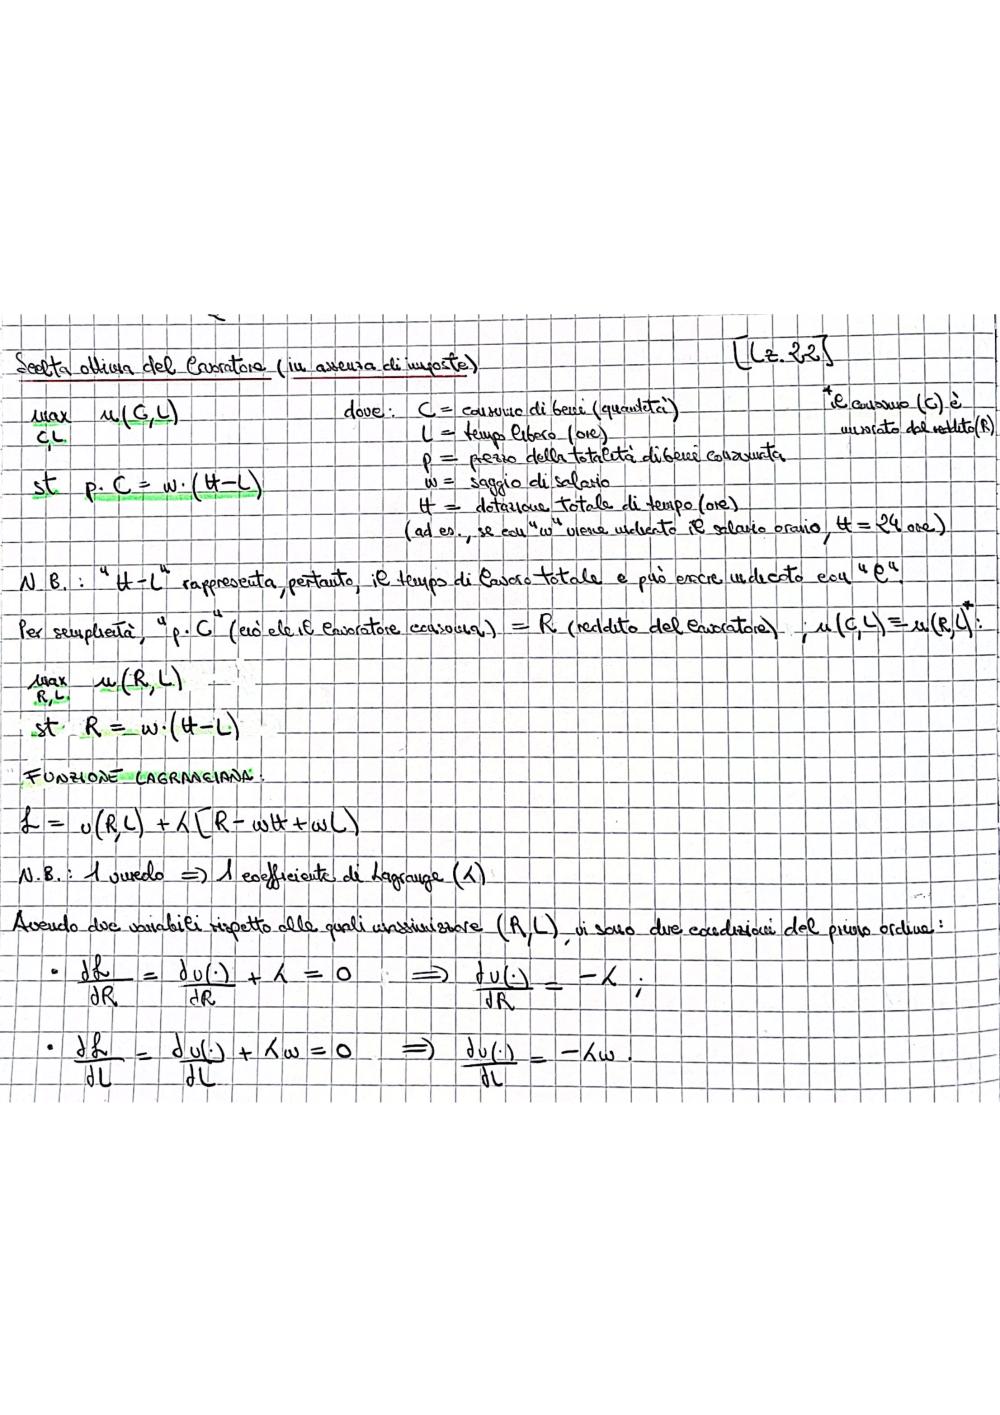 [Lz. 22]
Scelta ottima del lavoratore (in assenza di imposte)
max u(C,L) dove: C = consumo di beni (quantità) *il consumo (C) è
C,L L = tempo libero (ore) misurato dal reddito (R)
p = prezzo della totalità di beni consumata
st p·C = w·(H-L) w = saggio di salario
H = dotazione totale di tempo (ore)
(ad es., se con "w" viene indicato il salario orario, H = 24 ore)
N.B.: "H-L" rappresenta, pertanto, il tempo di lavoro totale e può essere indicato con "l".
Per semplicità, "p·C" (ciò che il lavoratore consuma) = R (reddito del lavoratore) ; u(C,L) = u(R,L)*:
max u(R,L)
R,L
st R = w·(H-L)
FUNZIONE LAGRANGIANA:
L = u(R,L) + λ[R-wH+wL]
N.B.: 1 vincolo ⇒ 1 coefficiente di Lagrange (λ)
Avendo due variabili rispetto alle quali massimizzare (R,L), vi sono due condizioni del primo ordine:
• dL/dR = du(·)/dR + λ = 0 ⇒ du(·)/dR = -λ ;
• dL/dL = du(·)/dL + λw = 0 ⇒ du(·)/dL = -λw .